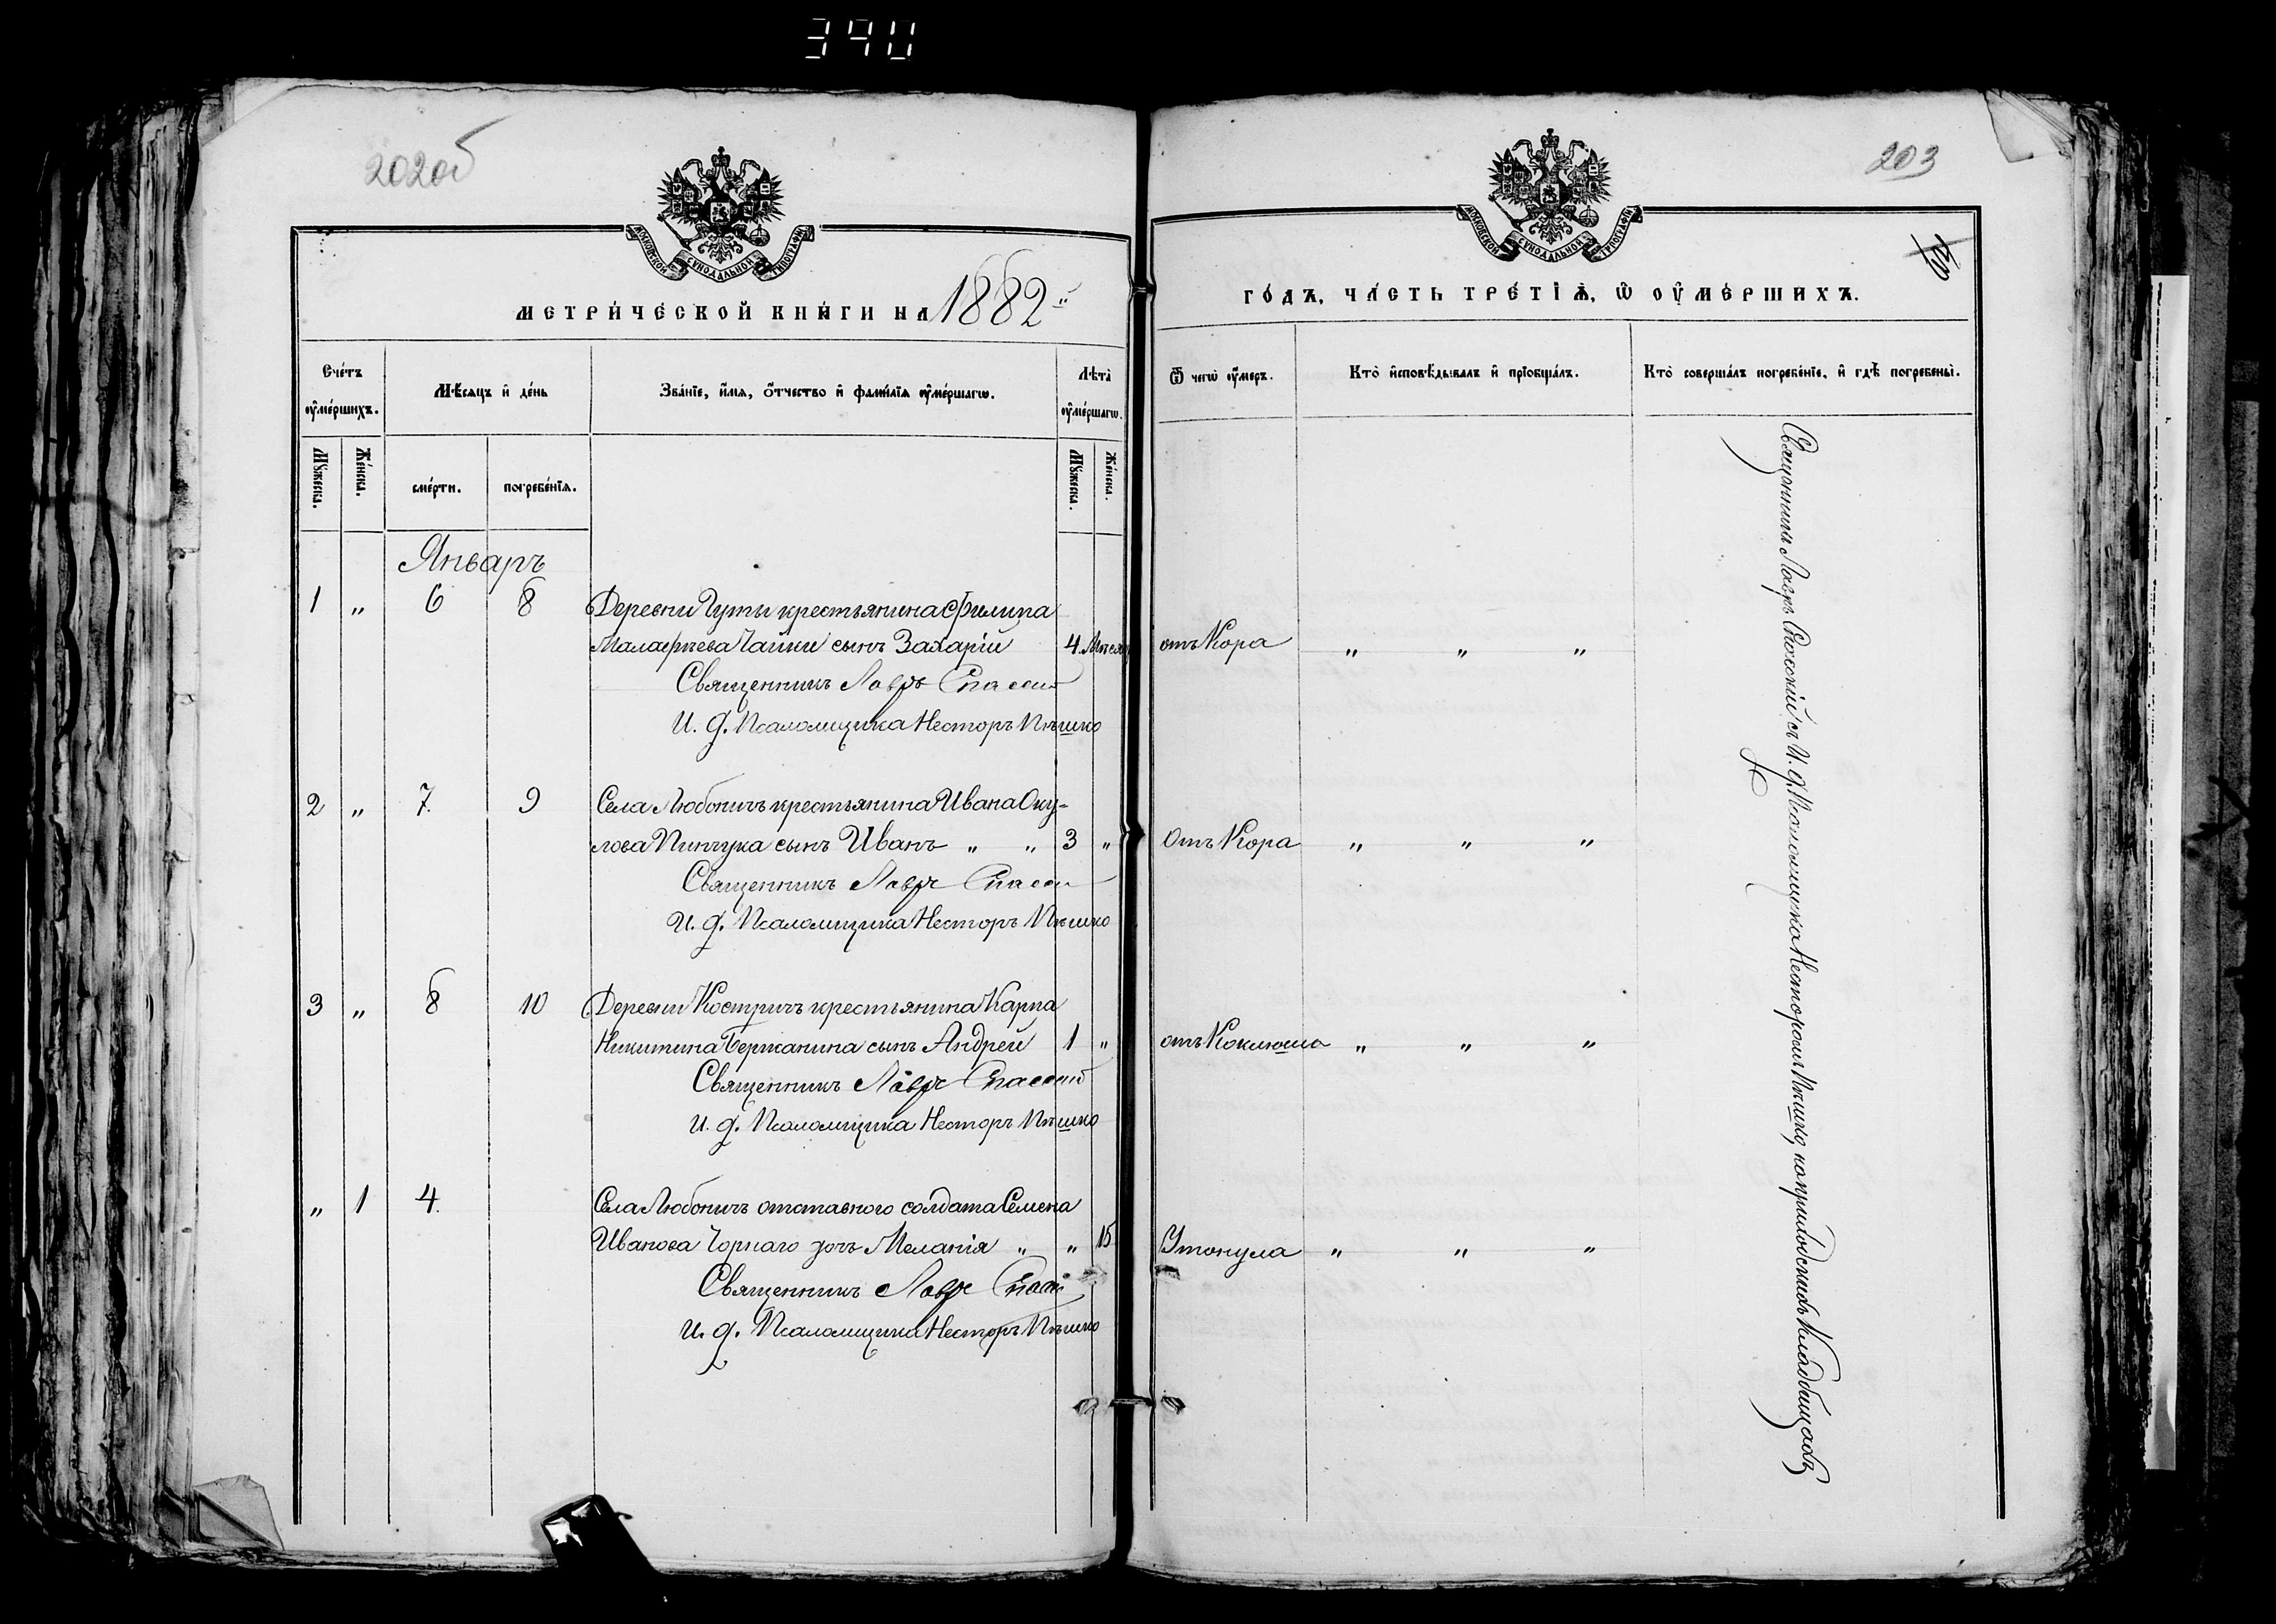 390
202об
203
МОСКОВСКОЙ СУНОДАЛЬНОЙ ТИПОГРАФІИ
МОСКОВСКОЙ СУНОДАЛЬНОЙ ТИПОГРАФІИ
МЕТРИЧЕСКОЙ КНИГИ НА 1882й
ГОДЪ, ЧАСТЬ ТРЕТІЯ, Ѿ ОУМЕРШИХЪ.
Счетъ оумершихъ.
Мѣсяцъ и день
Званіе, имя, отчество и фамилія оумершагѡ.
Лѣта оумершагѡ.
Ѿ чегѡ оумеръ.
Кто исповѣдывалъ и пріобщалъ.
Кто совершалъ погребеніе, и гдѣ погребены.
Мужеска.
Женска.
смерти.
погребенія.
Мужеска.
Женска.
Январь
1 " 6 8 Деревни Гуты крестьянина Филипа
Малафѣева Чайки сынъ Захарій 4 Мѣсяц отъ Кора " " "
Священникъ Лавръ Спасскій
И. д. Псаломщика Несторъ Пѣшко
2 " 7. 9 Села Любоничъ крестьянина Ивана Оку-
лова Пинчука сынъ Иванъ " " 3 " Отъ Кора " " "
Священникъ Лавръ Спасскій
И. д. Псаломщика Несторъ Пѣшко
3 " 8 10 Деревни Костричъ крестьянина Карпа
Никитина Бержанина сынъ Андрей 1 " отъ Коклюша " " "
Священникъ Лавръ Спасскій
И. д. Псаломщика Несторъ Пѣшко
" 1 4. Села Любоничъ отставного солдата Семена
Иванова Чорнаго дочь Меланія " " 15 Утонула " " "
Священникъ Лавръ Спасскій
И. д. Псаломщика Несторъ Пѣшко
Священникъ Лавръ Спасскій съ И. д. Псаломщика Несторомъ Пѣшко, на приходскихъ Кладбищахъ